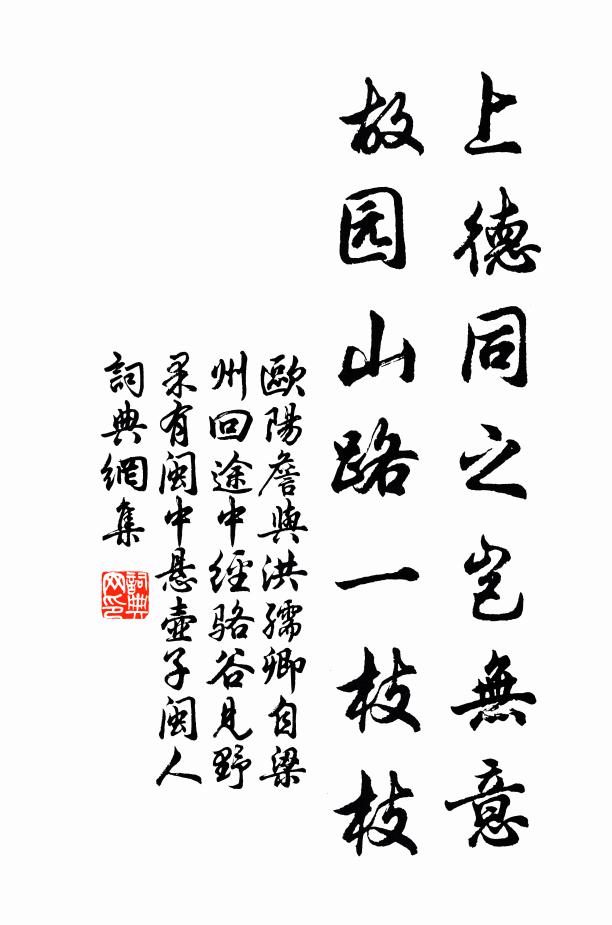 上德同之豈無意
故园山路一枝枝
歐陽詹與洪孺卿自梁
州回途中經骆谷見野
果有閩中懸壺子閩人
詞典網集
詞典
网印